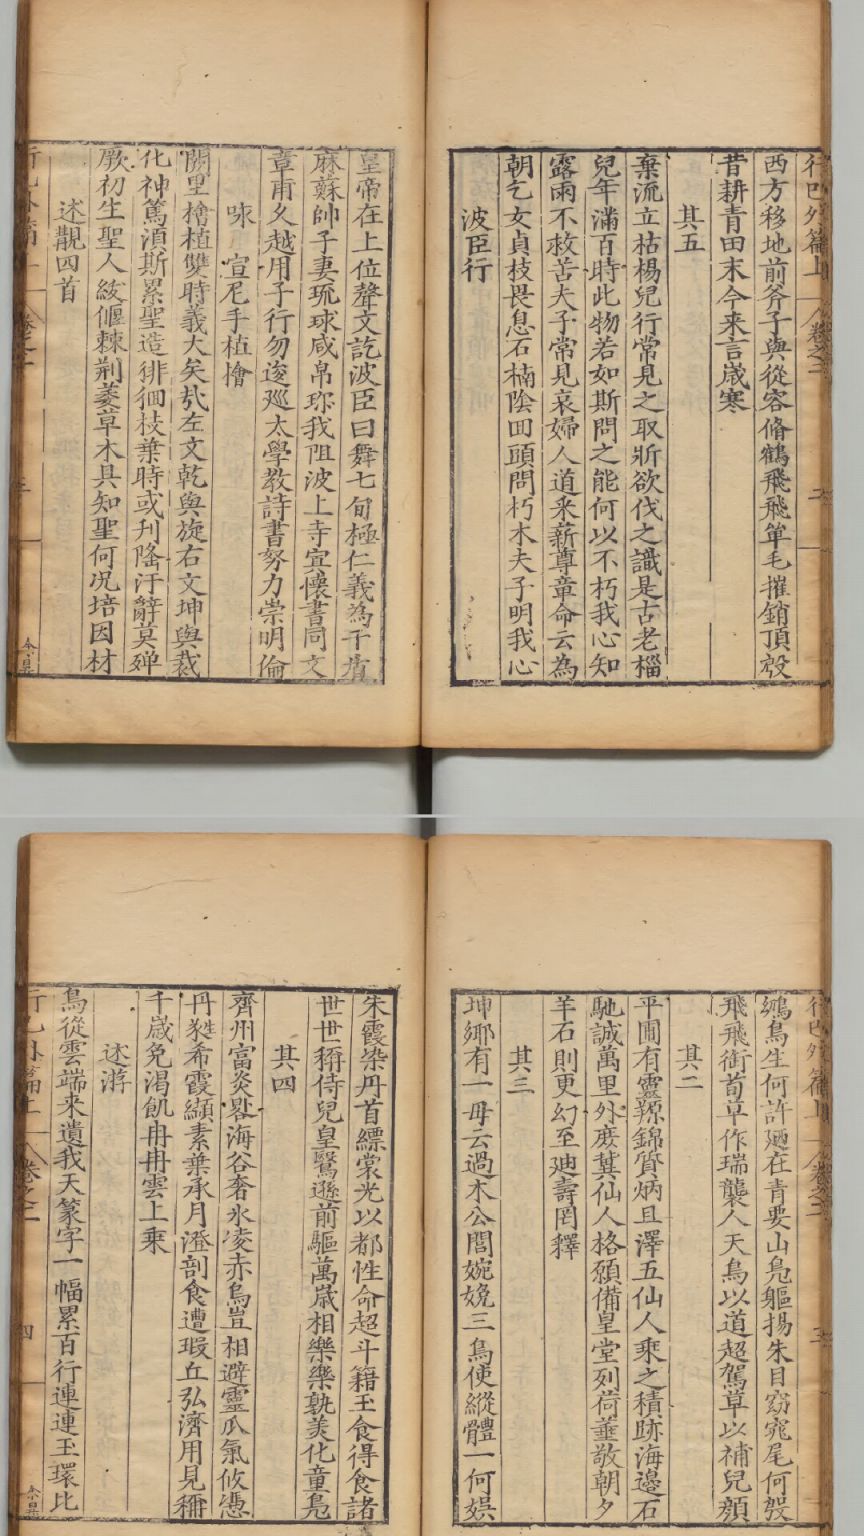 行巳外篇上
卷之二
二
西方移地前斧子與從容脩鶴飛飛單毛摧銷頂殼
昔耕青田末今来言歲寒
其五
棄流立枯楊兒行常見之取斨欲伐之識是古老椔
兒年滿百時此物若如斯問之能何以不朽我心知
露雨不救苦夫子常見哀婦人道釆薪尊章命云為
朝乞女貞枝畏息石楠陰囬頭問朽木夫子明我心
波臣行
皇帝在上位聲文訖波臣曰舞七旬極仁義為干
麻蘇帥子妻琉球咸帛珎我阻波上寺宜懷書同文
章甫久越用子行勿逡廵太學教詩書努力崇明倫
咏宣尼手植檜
闕里檜植雙時義大矣㢤左文乾與旋右文坤與裁
化神篤湏斯累聖造徘徊枝葉時或刋隆汙辭莫殫
厥初生聖人紱偃棘荆萎草木具知聖何况培因材
述翫四首
行巳外篇上
卷之二
行巳外篇上
卷之二
三
鳥生何許廼在青要山鳬軀揚朱目窈窕尾何
飛飛銜荀草作瑞襲人天鳥以道超駕草以補兒顔
其二
平圃有靈羱錦質炳且澤五仙人乘之積跡海邊石
馳誠萬里外庻冀仙人格願備皇堂列荷䔲敬朝夕
羊石則更幻至廸壽罔釋
其三
坤鄉有一毋云過木公閭婉娩三鳥使縱體一何娱
朱霞染丹首縹裳光以都性命超斗籍玉食得食諸
世世稱侍兒皇鷖遜前驅萬嵗相樂樂孰美化童鳬
其四
齊州富炎畧海谷奢氷凌赤鳥豈相避靈瓜氣攸憑
丹㸚希霞纈素葉承月澄剖食遭瑕丘弘濟用見稱
千嵗免渴飢冉冉雲上乘
述游
鳥從雲端来遺我天篆字一幅累百行連連玉環比
行巳外篇上
卷之二
四